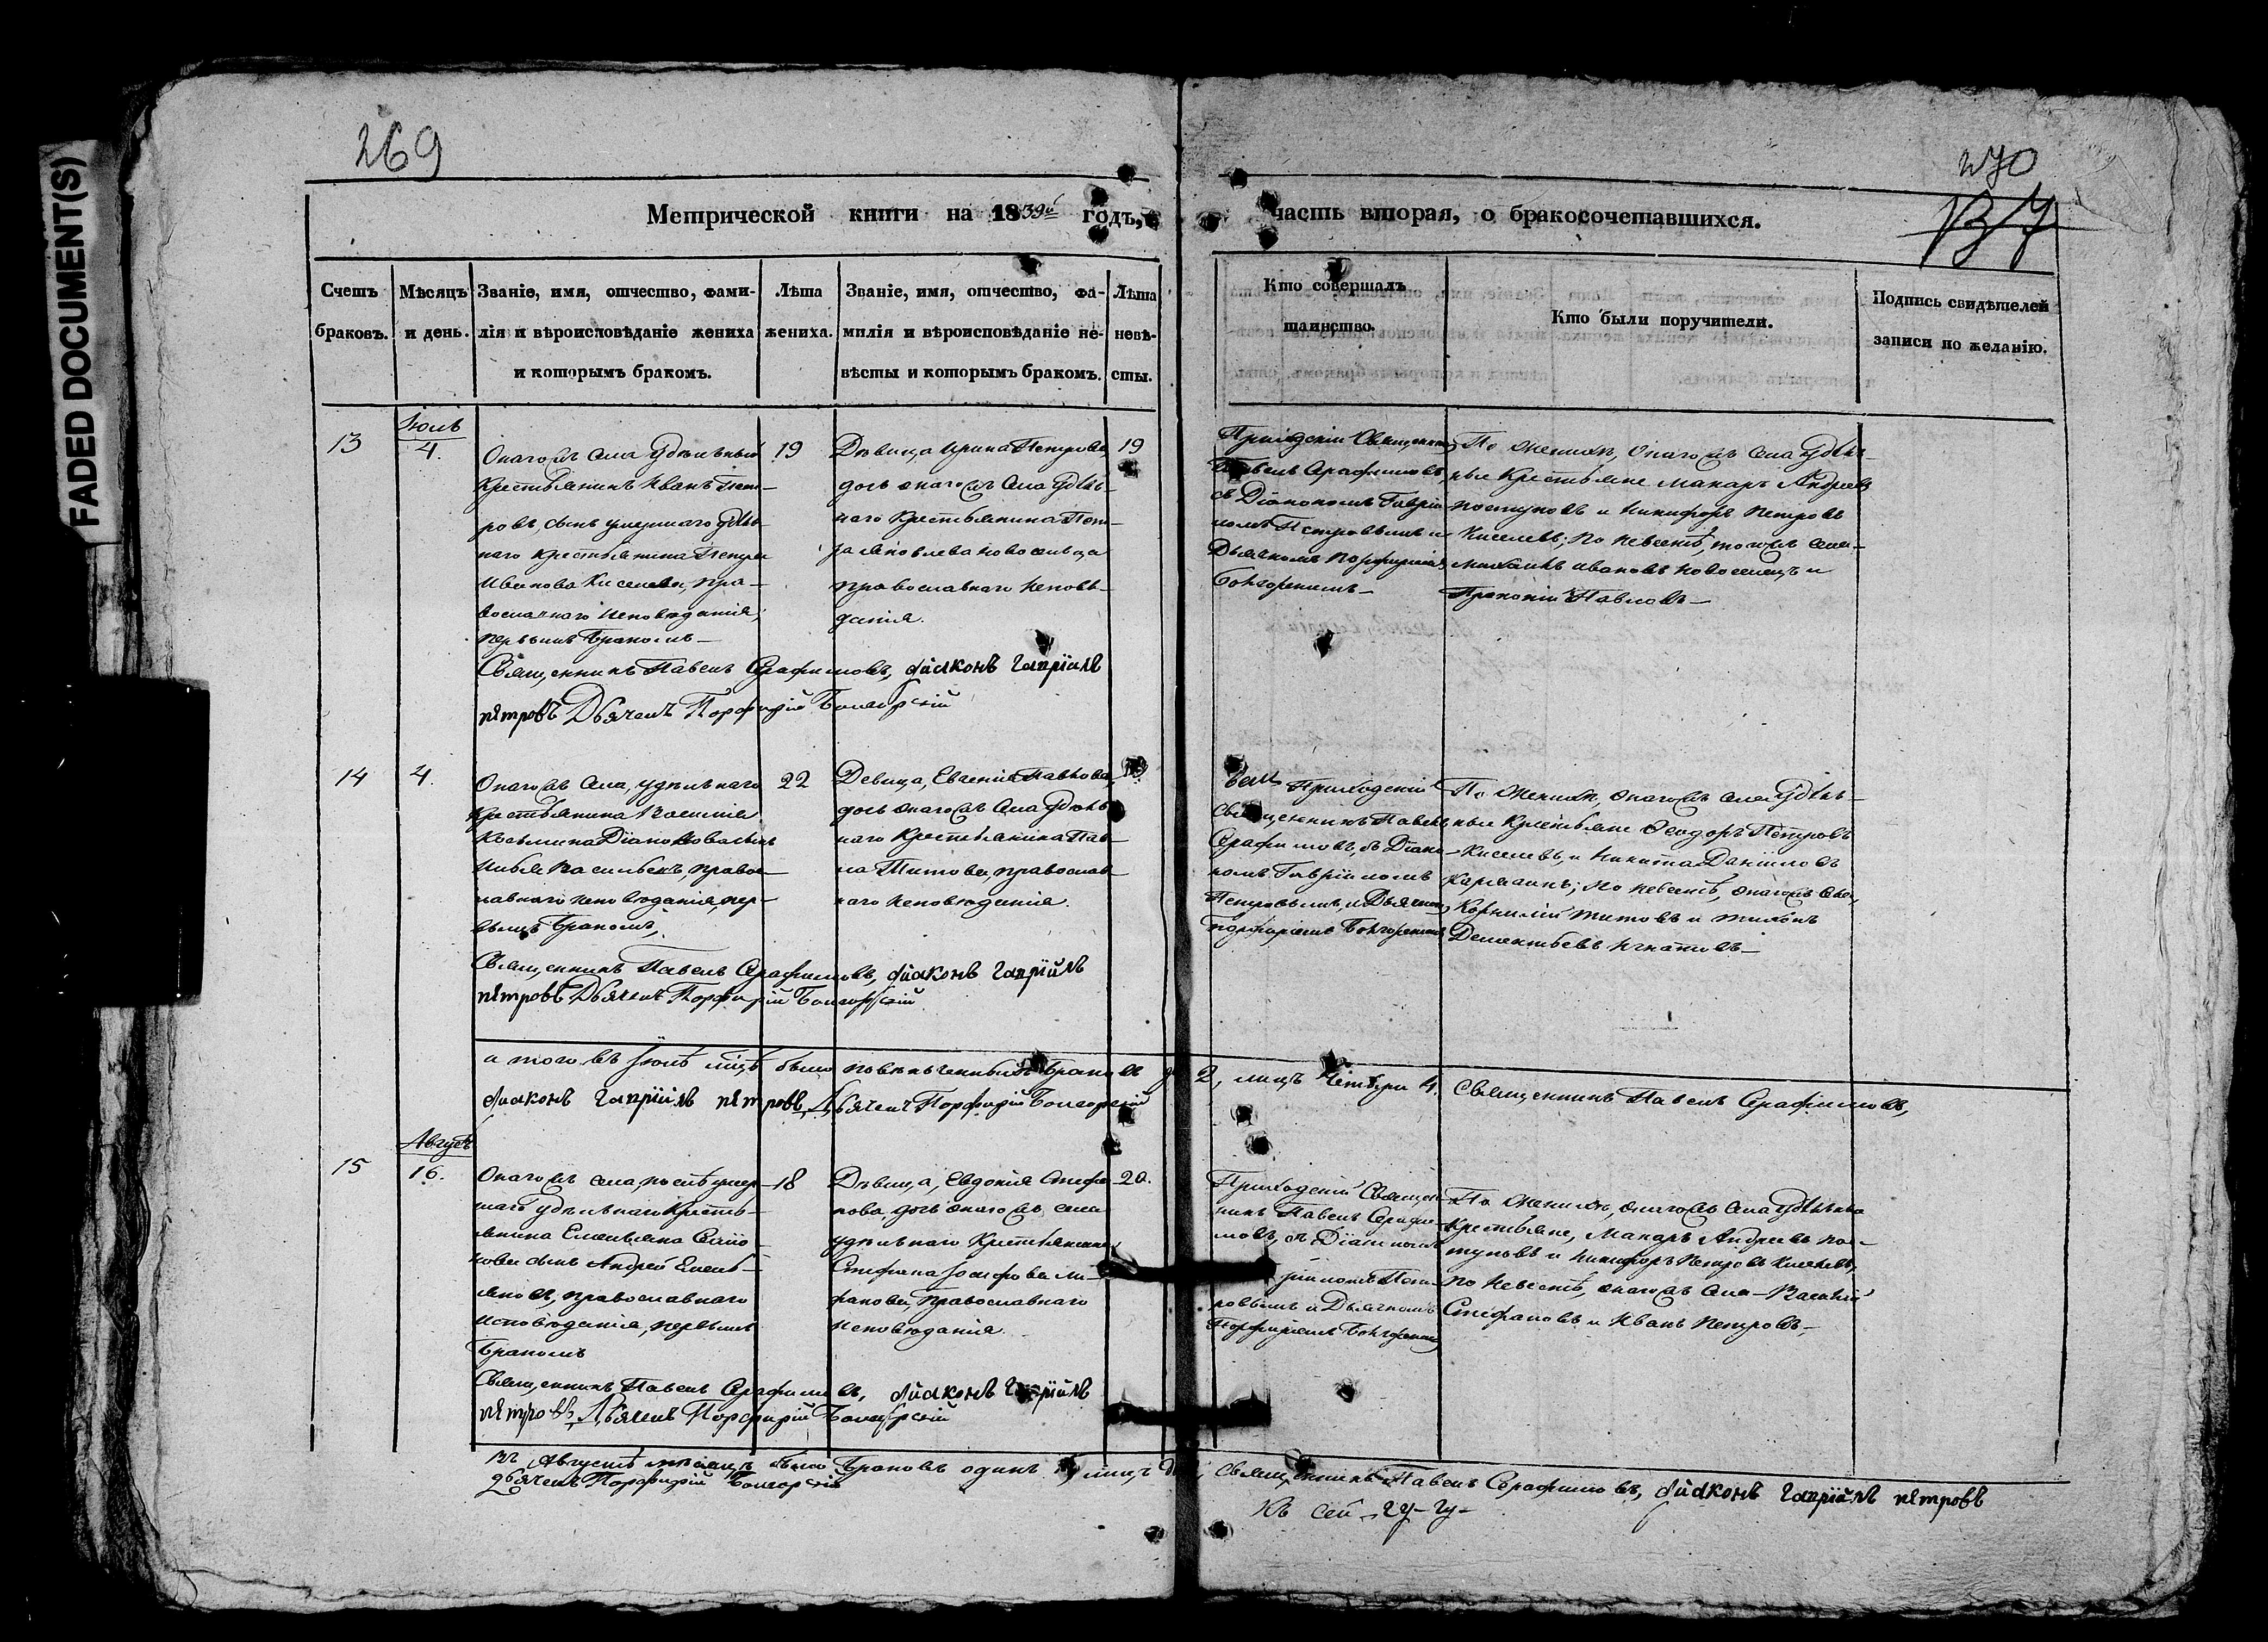 FADED DOCUMENT(S)
269
270
137
Метрической книги на 1839й годъ,
часть вторая, о бракосочетавшихся.
Счетъ браковъ.
Мѣсяцъ и день.
Званіе, имя, отчество, фами-
лія и вѣроисповѣданіе жениха
и которымъ бракомъ.
Лѣта
жениха.
Званіе, имя, отчество, фа-
милія и вѣроисповѣданіе не-
вѣсты и которымъ бракомъ.
Лѣта
невѣ-
сты.
Кто совершалъ
таинство.
Кто были поручители.
Подпись свидѣтелей
записи по желанію.
13
Іюль
4.
Онагожъ села Удѣльный
Крестьянинъ Иванъ Пет-
ровъ, сынъ умершаго Удѣль-
наго крестьянина Петра
Иванова Киселева, пра-
вославнаго исповѣданія,
первымъ бракомъ
19
Дѣвица Ирина Петрова
дочь онагожъ села Удѣль-
наго Крестьянина Пет-
ра Яковлева Новосельца
православнаго исповѣ-
данія.
19
Приходскій Священникъ
Павелъ Серафимовъ,
съ Діакономъ Гаврі-
иломъ Петровымъ и
Дьячкомъ Порфиріемъ
Боголюбскимъ
По женихѣ, онагожъ села Удѣль-
ные Крестьяне Макаръ Андреевъ
Постуновъ и Никифоръ Петровъ
Киселевъ; по невѣстѣ, тогожъ села
Михаилъ Ивановъ Новоселецъ и
Прокопій Павловъ
Священникъ Павелъ Серафимовъ, діаконъ Гавріилъ
петровъ Дьячекъ Порфирій
14
4.
Онагожъ села, удѣльнаго
Крестьянина Василія
Косьмина
Василь
православнаго исповѣданія, пер-
вымъ бракомъ,
22
Девица, Евгенія Павлова,
дочь онагожъ села Удѣль-
наго Крестьянина Пав-
ла Титова, православ-
наго исповѣданія.
Приходскій
Священникъ Павелъ
Серафимовъ, съ Діако-
номъ Гавріиломъ
Петровымъ, и Дьячкомъ
Порфиріемъ
По женихѣ, онагожъ села Удѣль-
ные Крестьяне Феодоръ Петровъ
Киселевъ, и Никита Даніиловъ
; по невѣстѣ, онагожъ села,
Корнилій Титовъ и Тихонъ
Дементьевъ Игнатовъ
Священникъ Павелъ Серафимовъ, діаконъ Гавріилъ
петровъ Дьячекъ Порфирій
итого въ Іюлѣ мцѣ было повѣнчанныхъ браковъ 2, лицъ четыре 4. Священникъ Павелъ Серафимовъ,
діаконъ Гавріилъ петровъ Дьячекъ Порфирій
15
Августъ
16.
Онагожъ села, послѣ умер-
шаго удѣльнаго Кресть-
янина Емельяна
сынъ Андрей Емель-
яновъ, православнаго
исповѣданія, первымъ
бракомъ
18
Дѣвица, Евдокія Стефа-
нова дочь онагожъ села
удѣльнаго Крестьянина
Стефана Іосифова
православнаго
исповѣданія
20.
Приходскій Священ-
никъ Павелъ Серафи-
мовъ, съ Діакономъ
ріиломъ Пет-
ровымъ и Дьячкомъ
Порфиріемъ
По женихѣ, онагожъ села Удѣльные
Крестьяне, Макаръ Андреевъ Пос-
туновъ и Никифоръ Петровъ Киселевъ,
по невѣстѣ, онагожъ села Василій
Стефановъ и Иванъ Петровъ,
Священникъ Павелъ Серафимовъ, діаконъ Гавріилъ
петровъ, Дьячекъ Порфирій
въ Августѣ мѣсяцѣ было браковъ одинъ 1, лицъ Священникъ Павелъ Серафимовъ, діаконъ Гавріилъ петровъ
дьячекъ Порфирій